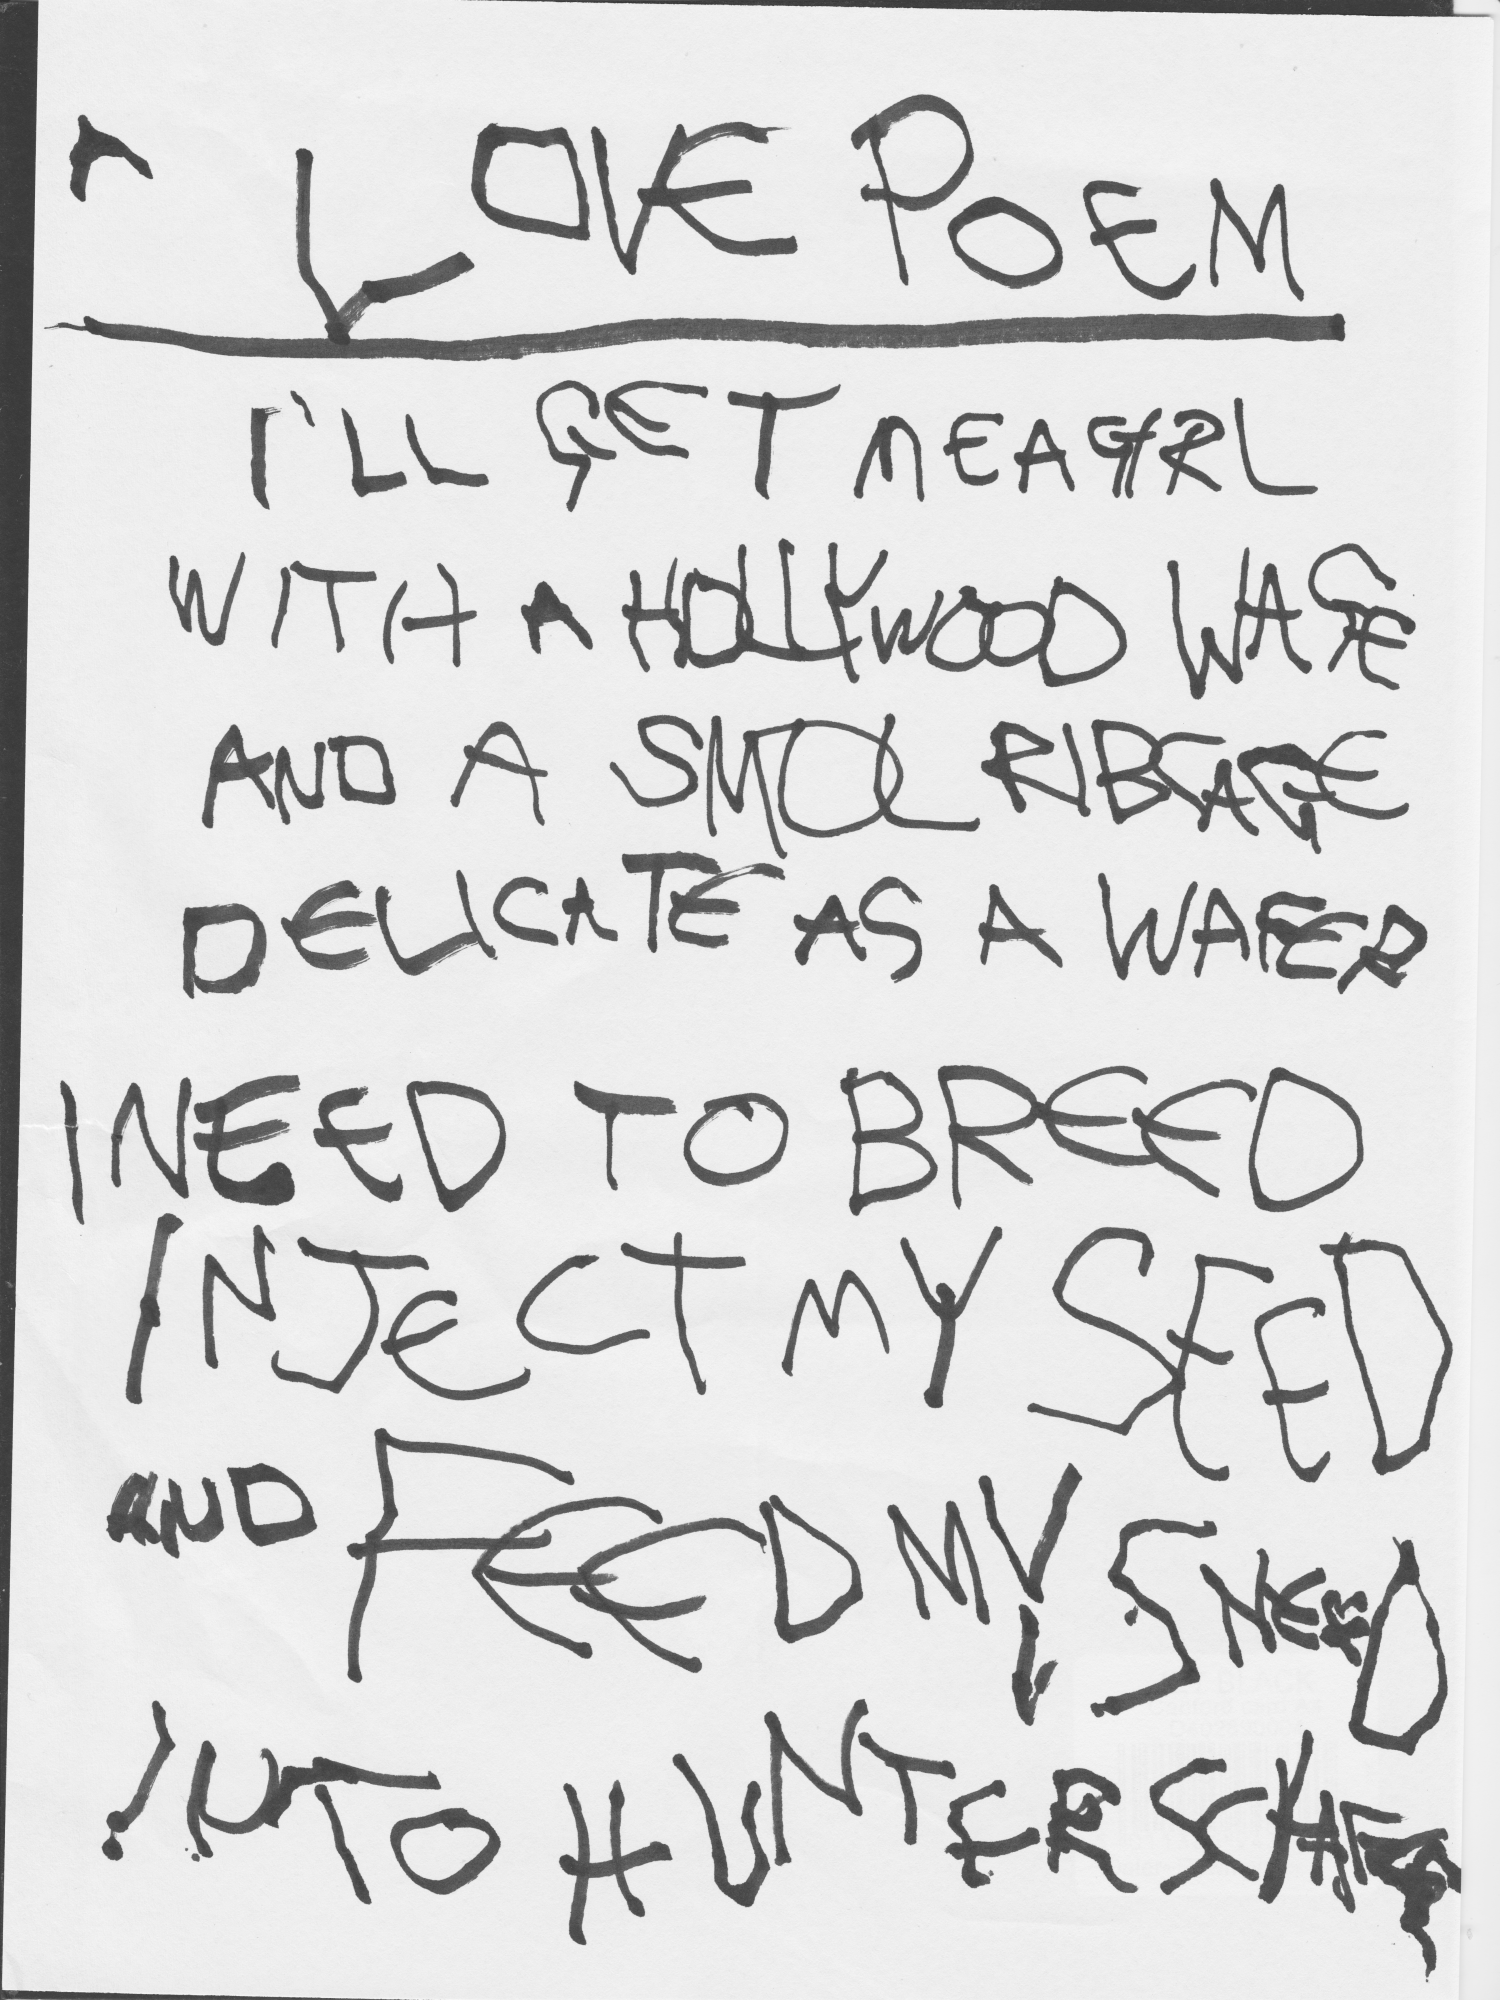 A LOVE POEM
I'LL GET ME A GIRL
WITH A HOLLYWOOD WAGE
AND A SMOL RIBCAGE
DELICATE AS A WAFER
I NEED TO BREED
INJECT MY SEED
AND FEED MY SNEED
INTO HUNTER SCHAFER